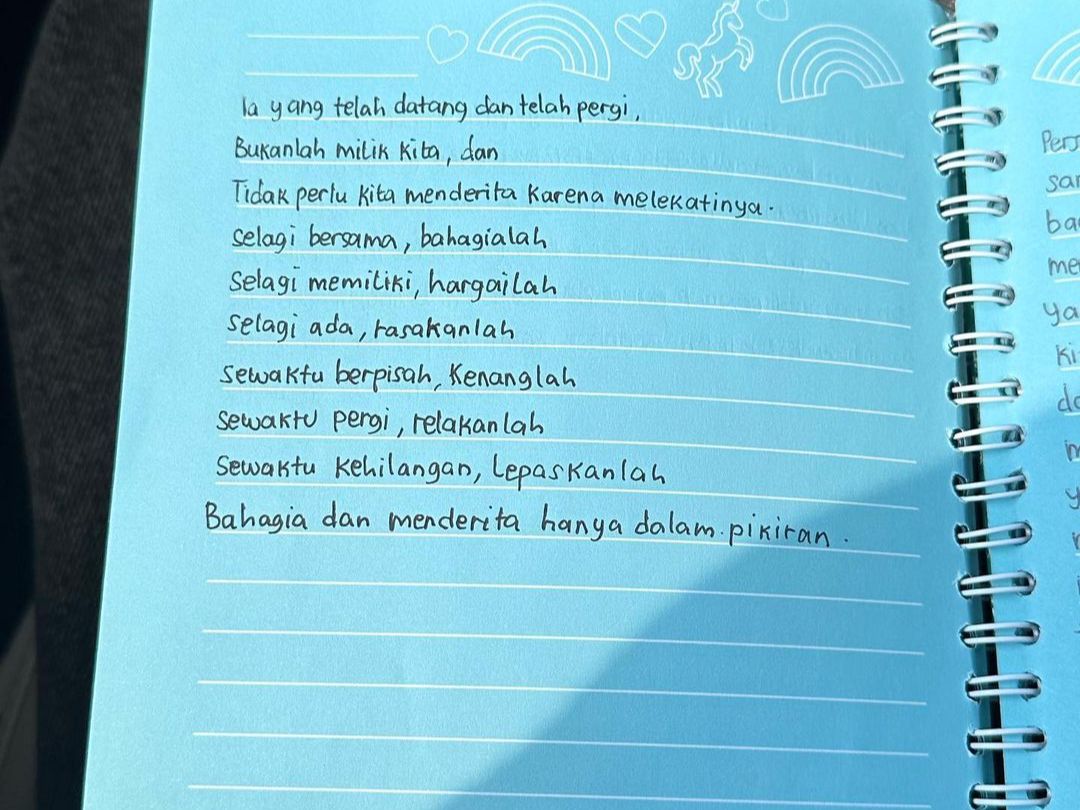 Ia yang telah datang dan telah pergi,
Bukanlah milik kita, dan
Tidak perlu kita menderita karena melekatinya.
Selagi bersama, bahagialah
Selagi memiliki, hargailah
Selagi ada, rasakanlah
Sewaktu berpisah, kenanglah
Sewaktu pergi, relakanlah
Sewaktu kehilangan, lepaskanlah
Bahagia dan menderita hanya dalam pikiran.